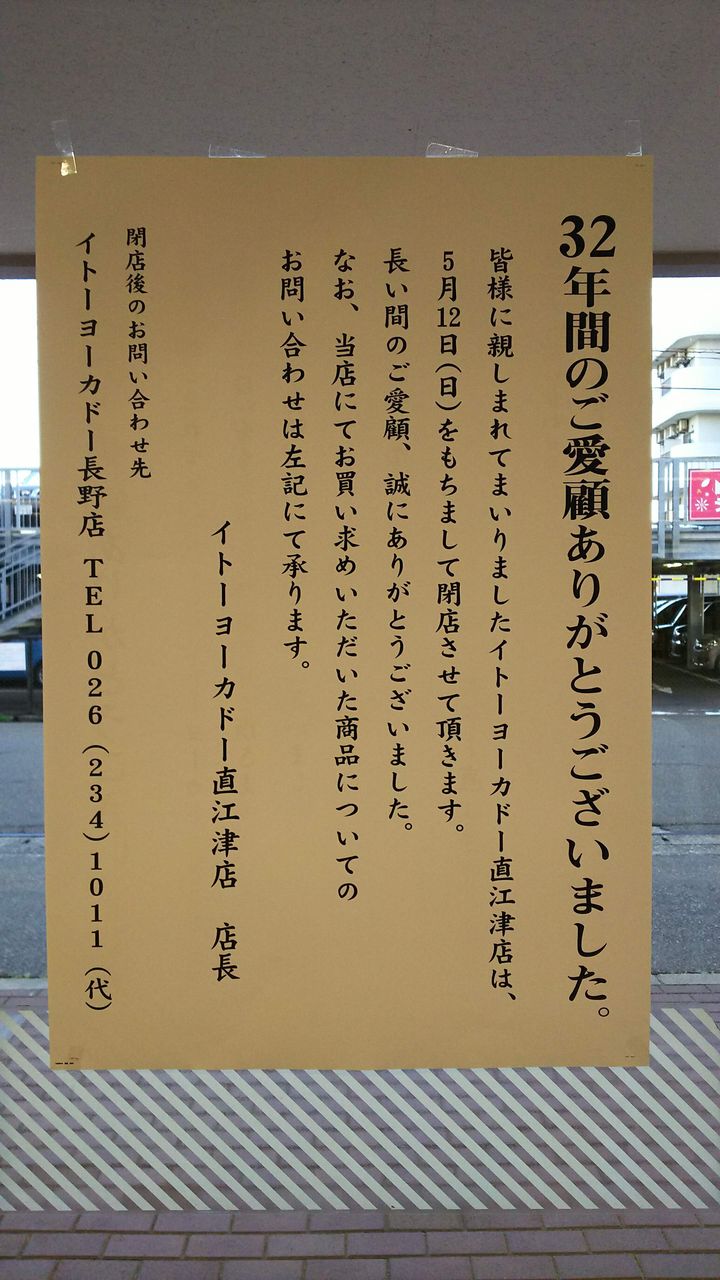 32年間のご愛顧ありがとうございました。
皆様に親しまれてまいりましたイトーヨーカドー直江津店は、
5月12日(日)をもちまして閉店させて頂きます。
長い間のご愛顧、誠にありがとうございました。
なお、当店にてお買い求めいただいた商品についての
お問い合わせは左記にて承ります。
イトーヨーカドー直江津店　店長
閉店後のお問い合わせ先
イトーヨーカドー長野店 TEL 026(234)1011(代)